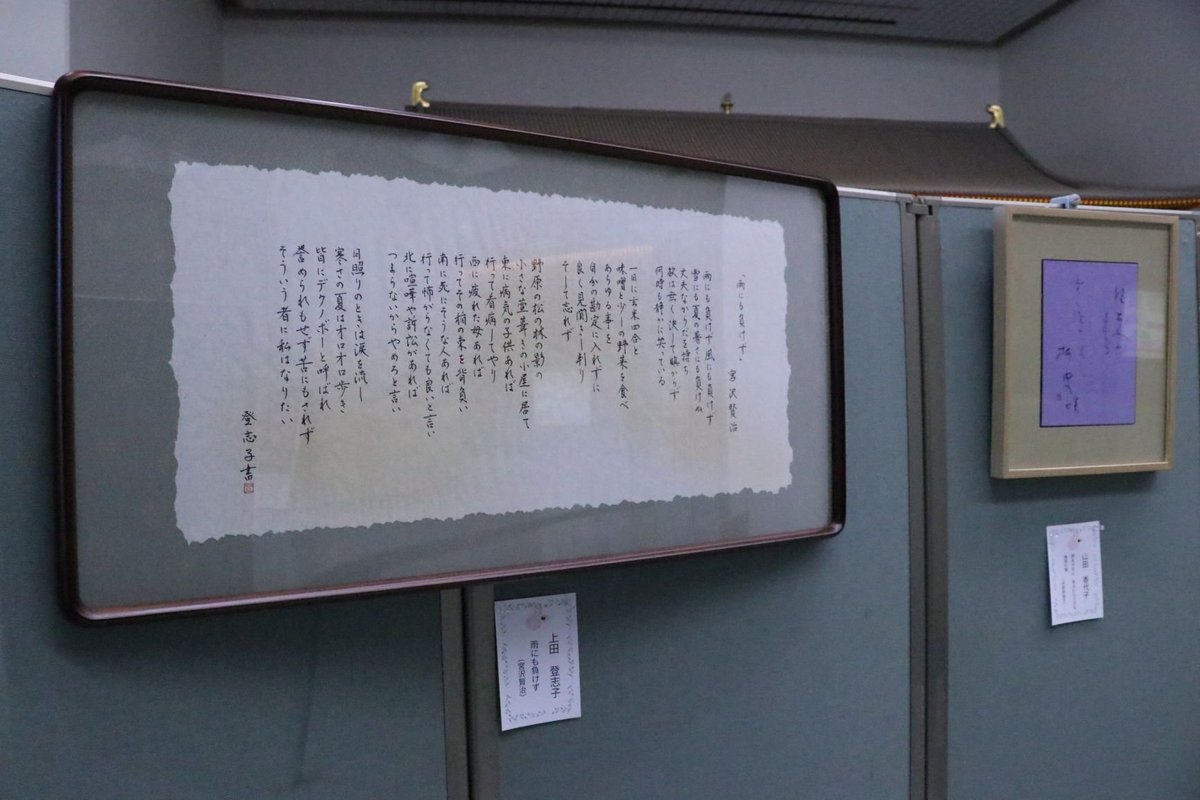 「雨にも負けず」 宮沢賢治
雨にも負けず風にも負けず
雪にも夏の暑さにも負けぬ
丈夫なからだを持ち
欲は無く決して瞋からず
何時も静かに笑っている
一日に玄米四合と
味噌と少しの野菜を食べ
あらゆる事を
自分の勘定に入れずに
良く見聞きし判り
そして忘れず
野原の松の林の影の
小さな萱葺きの小屋に居て
東に病気の子供あれば
行って看病してやり
西に疲れた母あれば
行ってその稲の束を背負い
南に死にそうな人あれば
行って怖がらなくても良いと言い
北に喧嘩や訴訟があれば
つまらないからやめろと言い
日照りのときは涙を流し
寒さの夏はオロオロ歩き
皆にデクノボーと呼ばれ
誉められもせず苦にもされず
そういう者に私はなりたい
登志子書
上田 登志子
雨にも負けず
(宮沢賢治)
山田 香代子